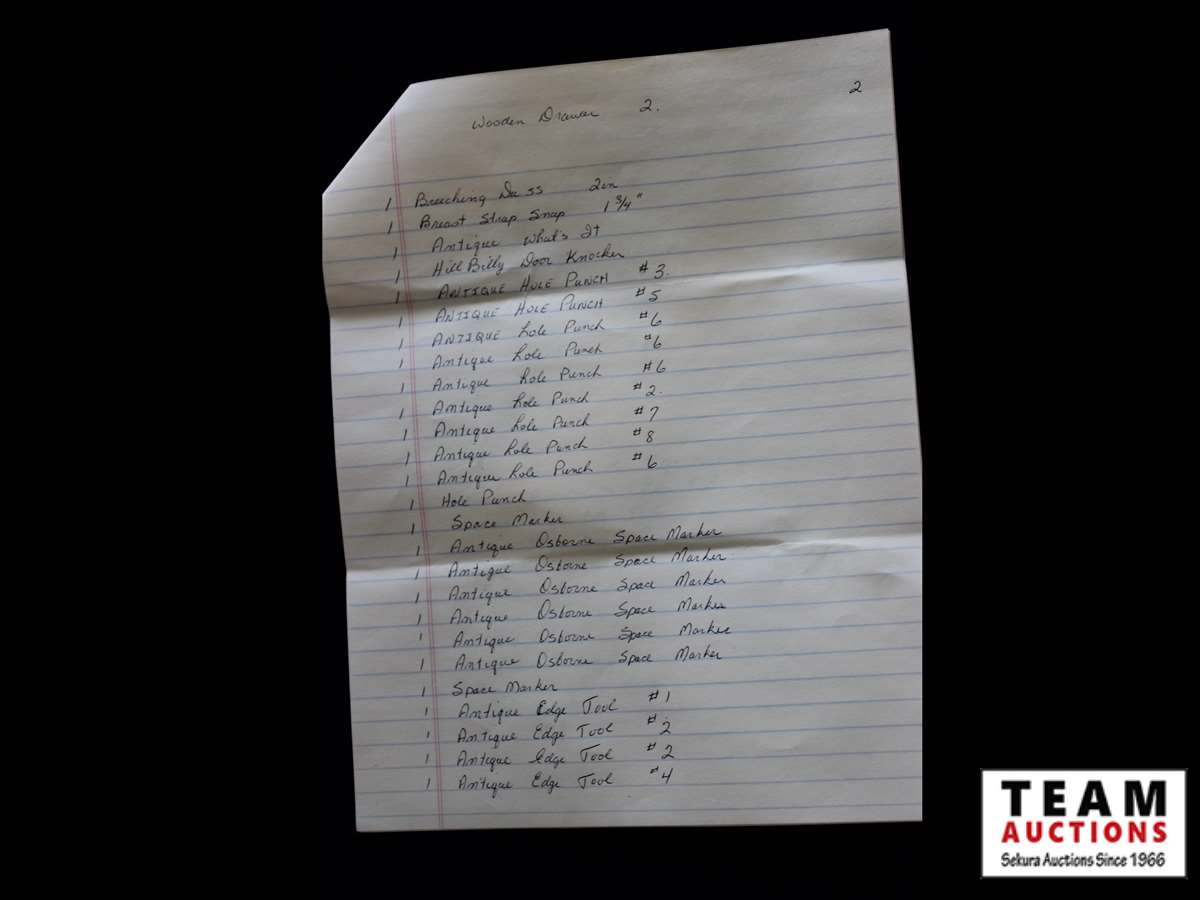 2
Wooden Drawer 2.
1 Breeching Dees 2in
1 Breast Strap Snap 1 3/4"
1 Antique What's It
1 Hill Billy Door Knocker
1 ANTIQUE HOLE PUNCH #3.
1 ANTIQUE HOLE PUNCH #5
1 ANTIQUE hole Punch #6
1 Antique hole Punch #6
1 Antique hole Punch #6
1 Antique hole Punch #2.
1 Antique hole Punch #7
1 Antique hole Punch #8
1 Antique hole Punch #6
1 Hole Punch
1 Space Marker
1 Antique Osborne Space Marker
1 Antique Osborne Space Marker
1 Antique Osborne Space Marker
1 Antique Osborne Space Marker
1 Antique Osborne Space Marker
1 Antique Osborne Space Marker
1 Space Marker
1 Antique Edge Tool #1
1 Antique Edge Tool #2
1 Antique Edge Tool #2
1 Antique Edge Tool #4
TEAM
AUCTIONS
Sekura Auctions Since 1966